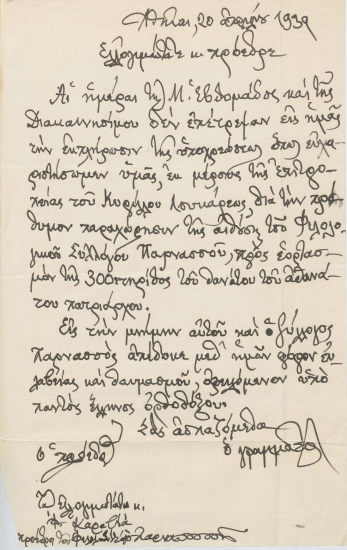 Ἀθῆναι, 20 Ἀπριλίου 1939
Ἐλλογιμώτατε κ. πρόεδρε
Αἱ ἡμέραι τῆς Μ. Ἑβδομάδος καὶ τῆς
Διακαινησίμου δὲν ἐπέτρεψαν εἰς ἡμᾶς
τὴν ἐκπλήρωσιν τῆς ὑποχρεώσεως ὅπως εὐχα-
ριστήσωμεν ὑμᾶς, ἐκ μέρους τῆς Ἐπιτρο-
πείας τοῦ Κυρίλλου Λουκάρεως διὰ τὴν πρό-
θυμον παραχώρησιν τῆς αἰθούσης τοῦ Φιλολο-
γικοῦ Συλλόγου Παρνασσοῦ, πρὸς ἑορτασ-
μὸν τῆς 300τηρίδος τοῦ θανάτου τοῦ ἀθανά-
του πατριάρχου.
Εἰς τὴν μνήμην αὐτοῦ καὶ ὁ Σύλλογος
Παρνασσὸς ἀπέδωκε μεθ' ἡμῶν φόρον εὐ-
λαβείας καὶ θαυμασμοῦ, ὀφειλόμενον ὑπὸ
παντὸς Ἕλληνος ὀρθοδόξου.
Σᾶς ἀσπαζόμεθα
ὁ πρόεδρος ὁ γραμματεύς
Τῷ Ἐλλογιμωτάτῳ κ.
Καραβίᾳ
πρόεδρον τοῦ Φιλολ. Συλλ. Παρνασσοῦ